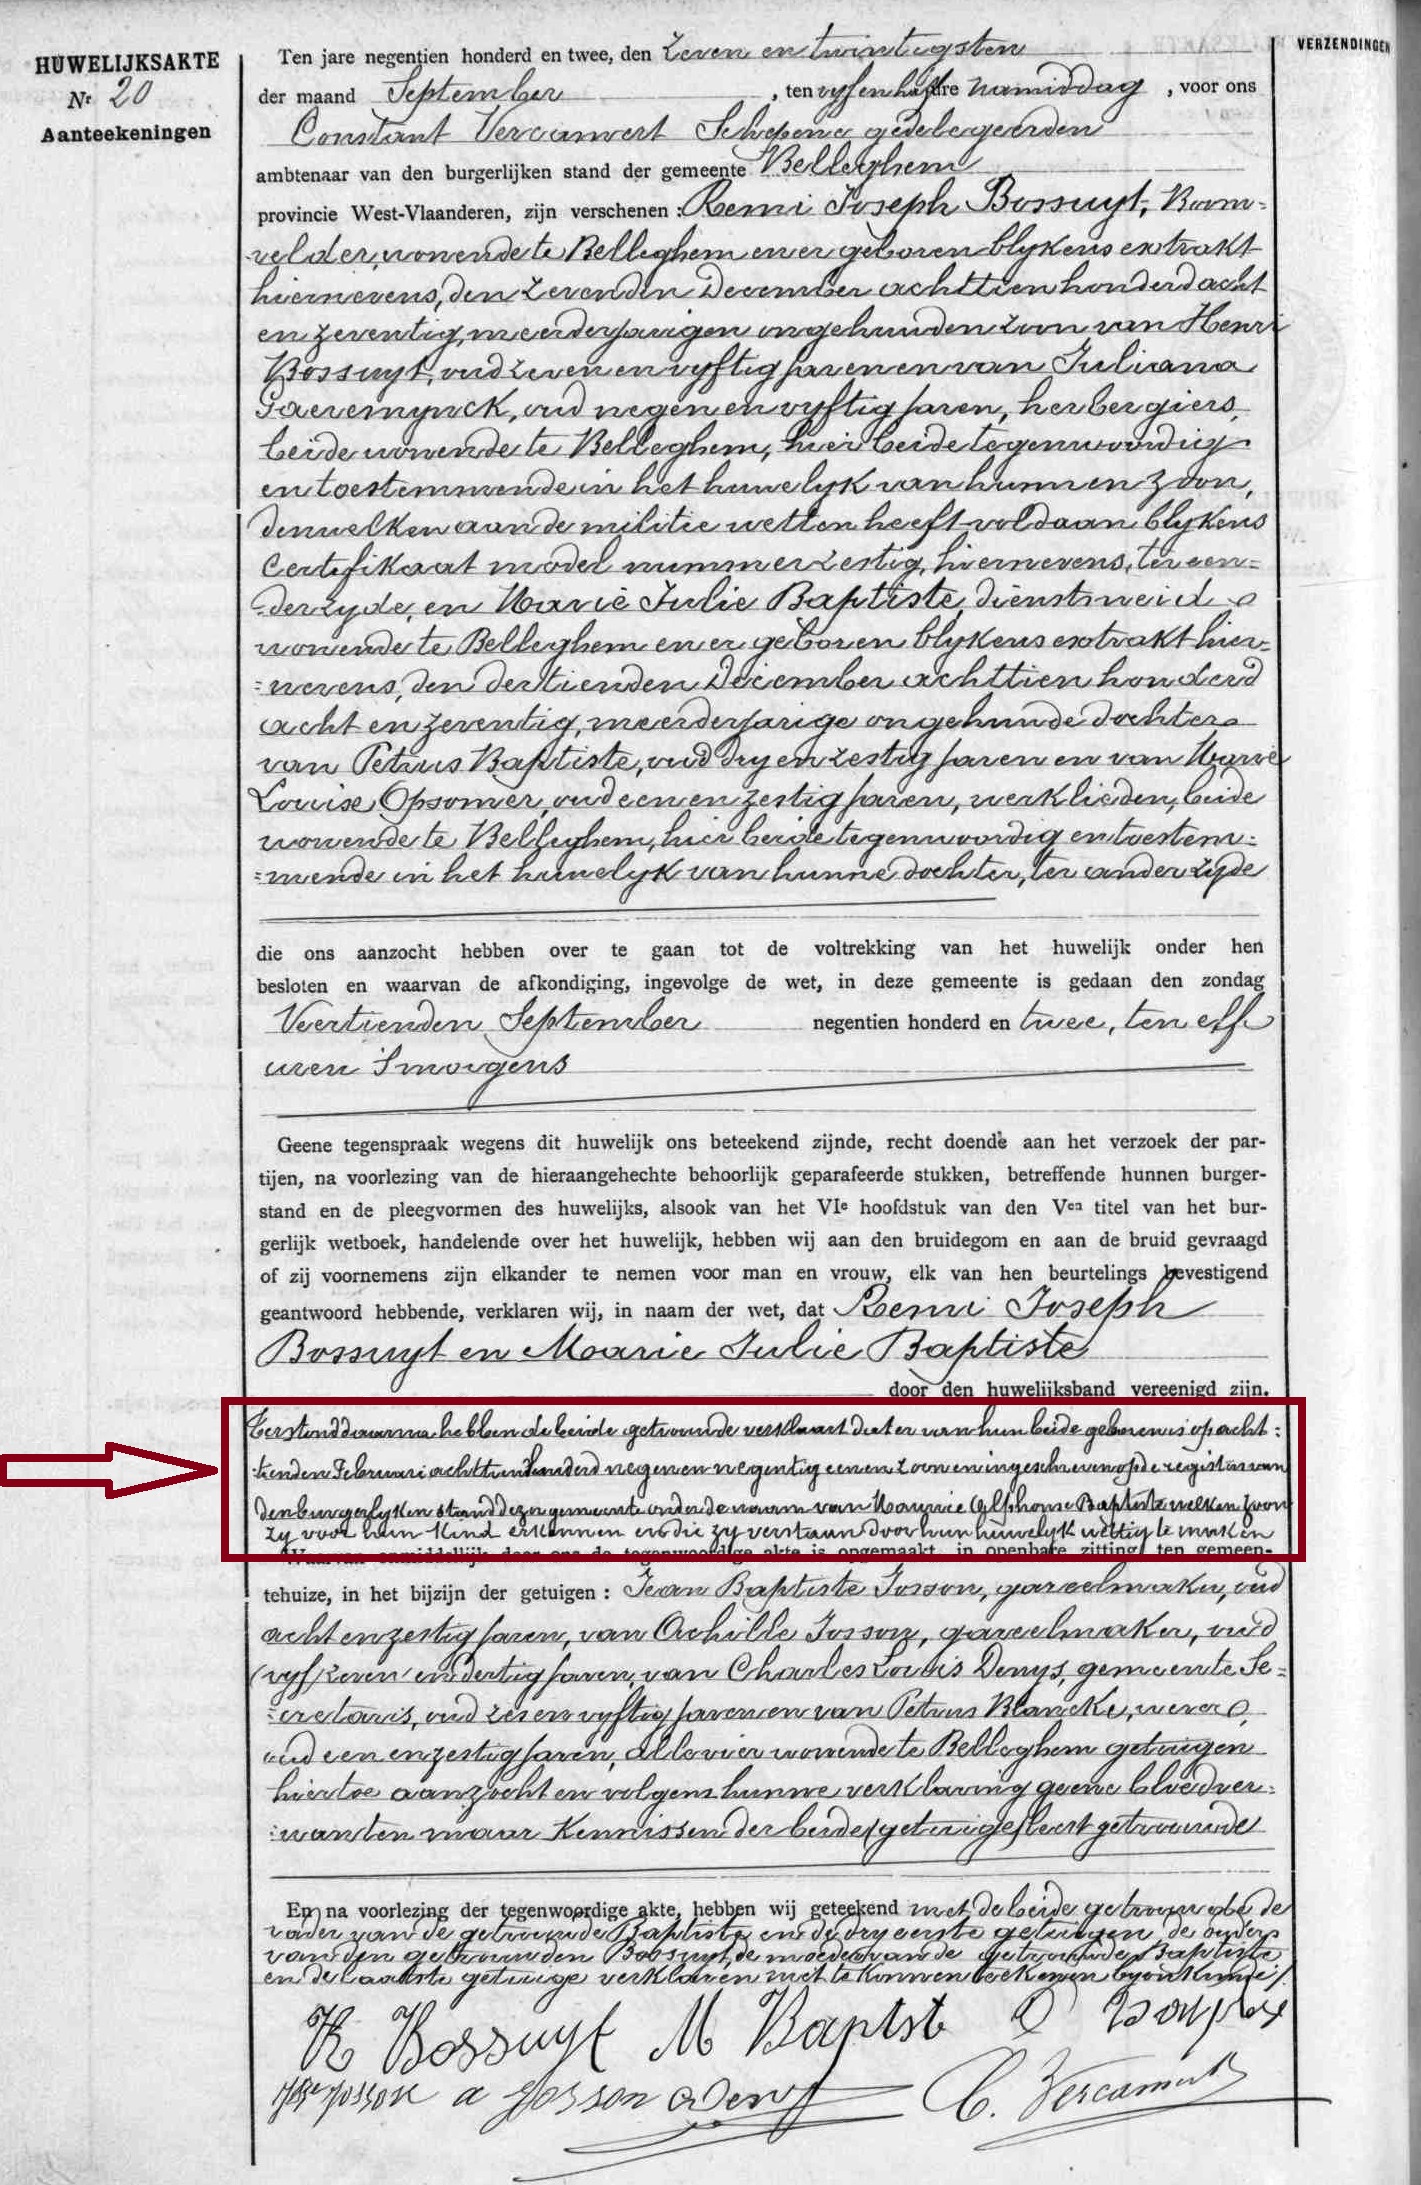 HUWELIJKSAKTE
Nr 20
Aanteekeningen
VERZENDINGEN
Ten jare negentien honderd en twee, den zeven en twintigsten
der maand September, ten vyf en half ure namiddag, voor ons
Constant Vercamert Schepene gedelegeerden
ambtenaar van den burgerlijken stand der gemeente Belleghem
provincie West-Vlaanderen, zijn verschenen : Remi Joseph Bossuyt, Boom=
velder, wonende te Belleghem en er geboren blykens extrakt
hiernevens, den zevenden December achttien honderd acht
en zeventig, meerderjarigen ongehuuden zoon van Henri
Bossuyt, oud zeven en vyftig jaren en van Juliana
Gaeremynck, oud negen en vyftig jaren, herbergiers,
beide wonende te Belleghem, hier beide tegenwoordig
en toestemmende in het huwelyk van hunnen zoon,
denwelken aan de militie wetten heeft voldaan blykens
Certifikaat model nummer zestig, hiernevens, ter een=
=derzyde, en Marie Julie Baptiste, dienstmeid
wonende te Belleghem en er geboren blykens extrakt hier=
=nevens, den dertienden December achttien honderd
acht en zeventig, meerderjarige ongehuude dochter
van Petrus Baptiste, oud dry en zestig jaren en van Marie
Louise Opsomer, oud een en zestig jaren, werklieden, beide
wonende te Belleghem, hier beide tegenwoordig en toestem=
=mende in het huwelyk van hunne dochter, ter ander zyde
die ons aanzocht hebben over te gaan tot de voltrekking van het huwelijk onder hen
besloten en waarvan de afkondiging, ingevolge de wet, in deze gemeente is gedaan den zondag
Veertienden September negentien honderd en twee, ten elf
uren 's morgens
Geene tegenspraak wegens dit huwelijk ons beteekend zijnde, recht doende aan het verzoek der par-
tijen, na voorlezing van de hieraangehechte behoorlijk geparafeerde stukken, betreffende hunnen burger-
stand en de pleegvormen des huwelijks, alsook van het VIe hoofdstuk van den Ven titel van het bur-
gerlijk wetboek, handelende over het huwelijk, hebben wij aan den bruidegom en aan de bruid gevraagd
of zij voornemens zijn elkander te nemen voor man en vrouw, elk van hen beurtelings bevestigend
geantwoord hebbende, verklaren wij, in naam der wet, dat Remi Joseph
Bossuyt en Marie Julie Baptiste
door den huwelijksband vereenigd zijn.
Terstond daarna hebben de beide getrouwde verklaart dat er van hun beide geboren is op acht=
=tienden Februari achttien honderd negen en negentig eenen zoon en ingeschreven op de registers van
den burgerlyken stand dezer gemeente onder de naam van Maurice Alphonse Baptiste welken zoon
zy voor hun kind erkennen en die zy verstaan door hun huwelyk wettig te maken
Waarvan onmiddellijk door ons de tegenwoordige akte is opgemaakt, in openbare zitting, ten gemeen-
tehuize, in het bijzijn der getuigen : Jean Baptiste Josson, gareelmaker, oud
acht en zestig jaren, van Achille Josson, gareelmaker, oud
(vyf) zeven en dertig jaren, van Charles Louis Denys, gemeente Se=
=cretaris, oud zes en vyftig jaren en van Petrus Blancke, wever,
oud een en zestig jaren, alle vier wonende te Belleghem getuigen
hiertoe aanzocht en volgens hunne verklaring geene bloedver=
=wanten maar kennissen der beide (getuige) eerst getrouwde
En na voorlezing der tegenwoordige akte, hebben wij geteekend met de beide getrouwde de
vader van de getrouwde Baptiste en de dry eerste getuigen, de ouders
van den getrouwden Bossuyt, de moeder van de getrouwde Baptiste
en de laatste getuige verklaren niet te konnen teekenen by onkunde
R Bossuyt M Baptist
JBte Josson a Josson Denys C. Vercamert